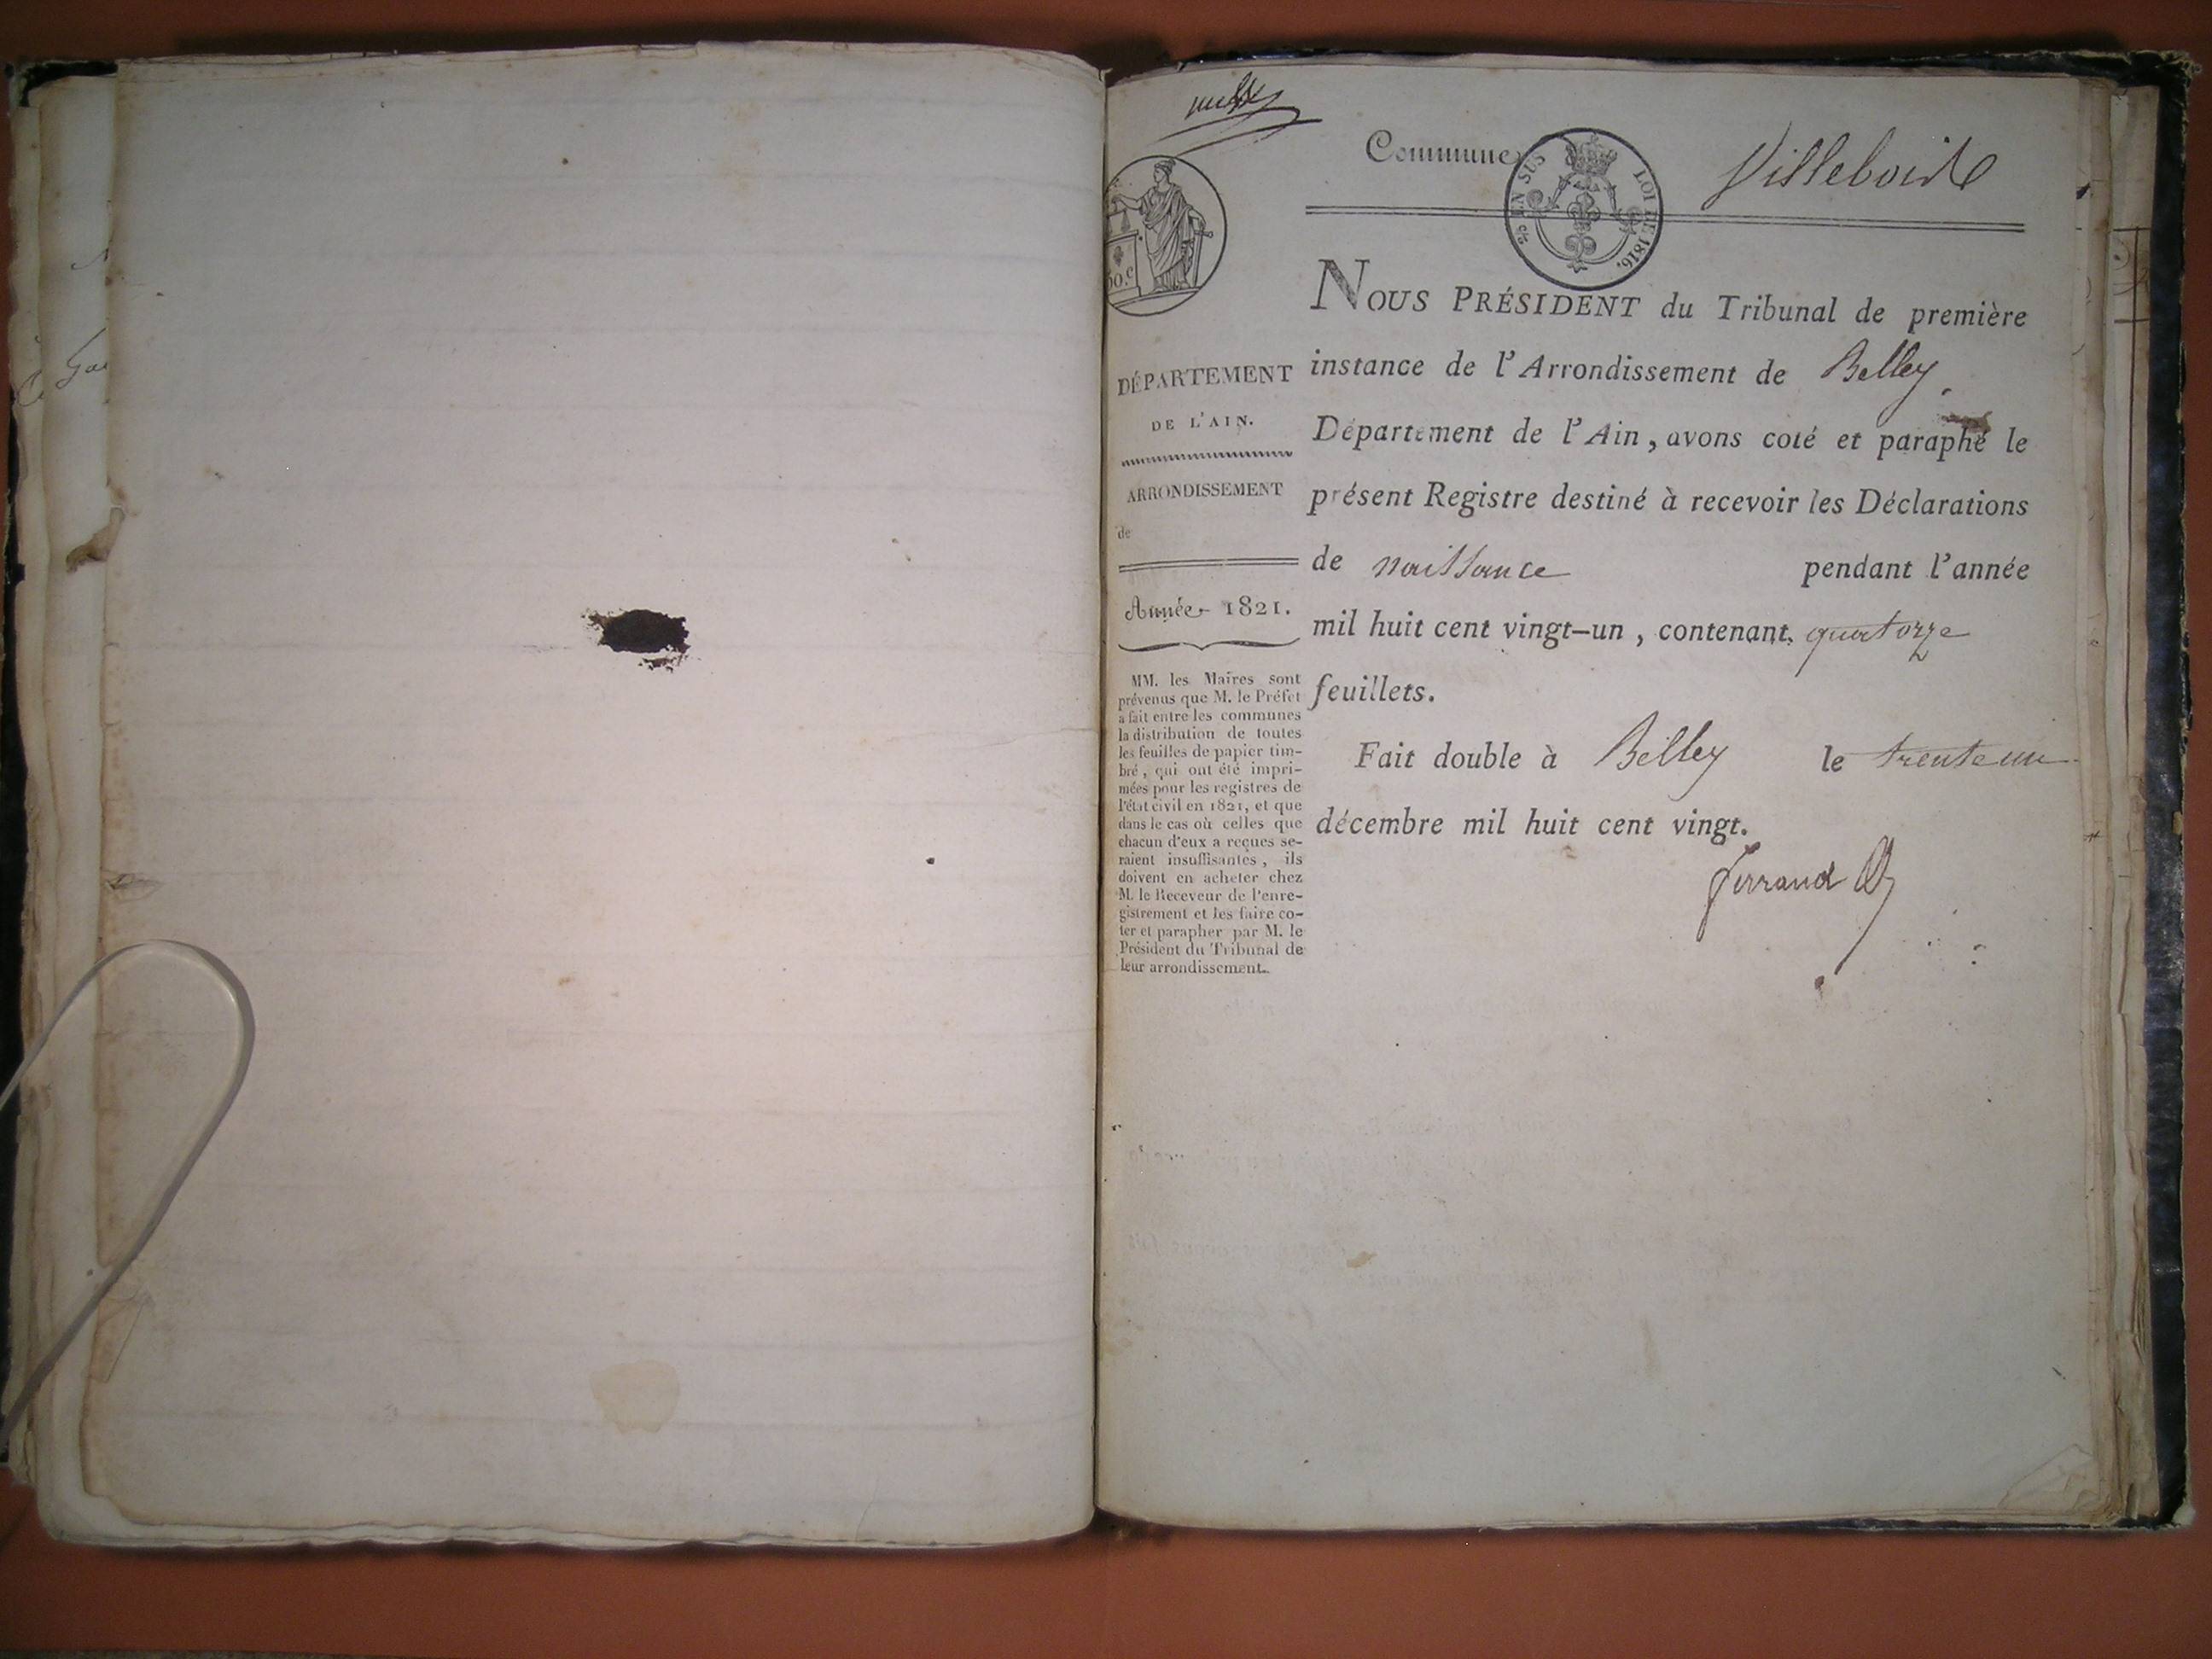 Gai
Commune
Villebois
EN SUS
LOI DE 1816.
60.c
NOUS PRÉSIDENT du Tribunal de première
instance de l'Arrondissement de Belley
Département de l'Ain, avons coté et paraphé le
présent Registre destiné à recevoir les Déclarations
de naissance pendant l'année
mil huit cent vingt-un, contenant quatorze
feuillets.
Fait double à Belley le trente un
décembre mil huit cent vingt.
ferrand
DÉPARTEMENT
DE L'AIN.
ARRONDISSEMENT
de
Année 1821.
MM. les Maires sont
prévenus que M. le Préfet
a fait entre les communes
la distribution de toutes
les feuilles de papier tim-
bré, qui ont été impri-
mées pour les registres de
l'état civil en 1821, et que
dans le cas où celles que
chacun d'eux a reçues se-
raient insuffisantes, ils
doivent en acheter chez
M. le Receveur de l'enre-
gistrement et les faire co-
ter et parapher par M. le
Président du Tribunal de
leur arrondissement.